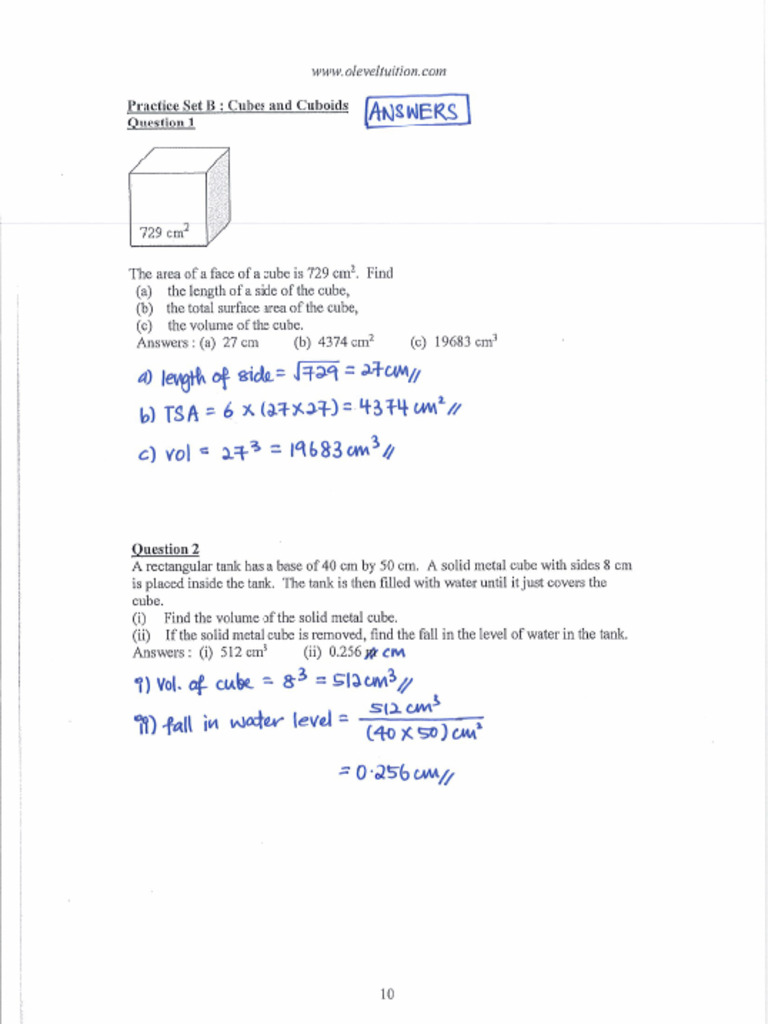 www.oleveltuition.com
Practice Set B : Cubes and Cuboids
ANSWERS
Question 1
729 cm²
The area of a face of a cube is 729 cm². Find
(a) the length of a side of the cube,
(b) the total surface area of the cube,
(c) the volume of the cube.
Answers : (a) 27 cm (b) 4374 cm² (c) 19683 cm³
a) length of side = √729 = 27cm//
b) TSA = 6 × (27×27) = 4374 cm²//
c) vol = 27³ = 19683 cm³//
Question 2
A rectangular tank has a base of 40 cm by 50 cm. A solid metal cube with sides 8 cm
is placed inside the tank. The tank is then filled with water until it just covers the
cube.
(i) Find the volume of the solid metal cube.
(ii) If the solid metal cube is removed, find the fall in the level of water in the tank.
Answers : (i) 512 cm³ (ii) 0.256 cm
i) Vol. of cube = 8³ = 512cm³//
ii) fall in water level = 512 cm³
(40 × 50) cm²
= 0.256 cm//
10